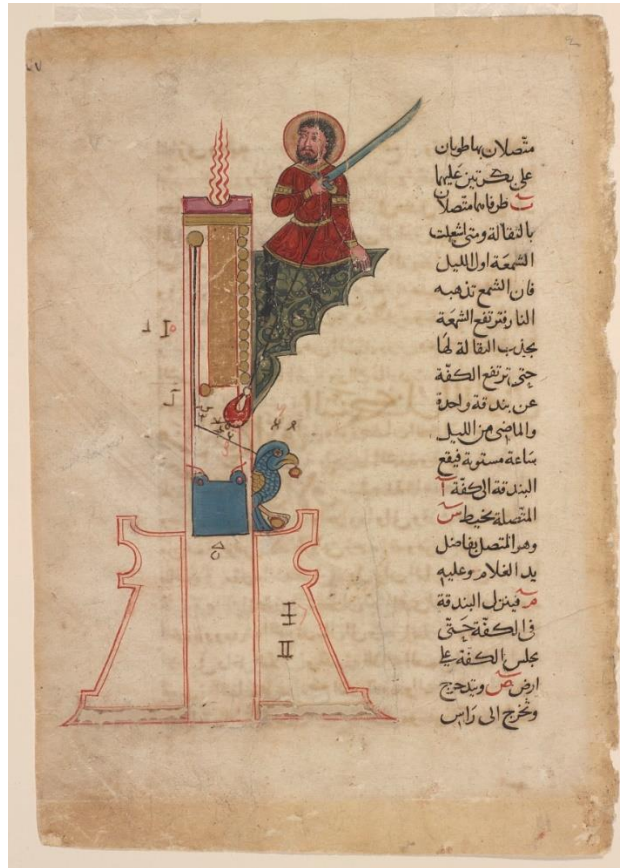 متصلان بها طويان
على بكرتين عليهما
طرفاهما متصلان
بالثقالة ومتى اشعلت
الشمعة اول الليل
فان الشمع تذهبه
النار فترتفع الشمعة
بجذب الثقالة لها
حتى ترتفع الكفّة
عن بندقة واحدة
والماضى من الليل
ساعة مستوية فيقع
البندقة الى كفّة آ
المتصلة بخيط س
وهو المتصل بفاضل
يد الغلام وعليه
م فينزل البندقة
فى الكفّة حتّى
يجلس الكفّة على
ارض ص ويتدحرج
وتخرج الى راس